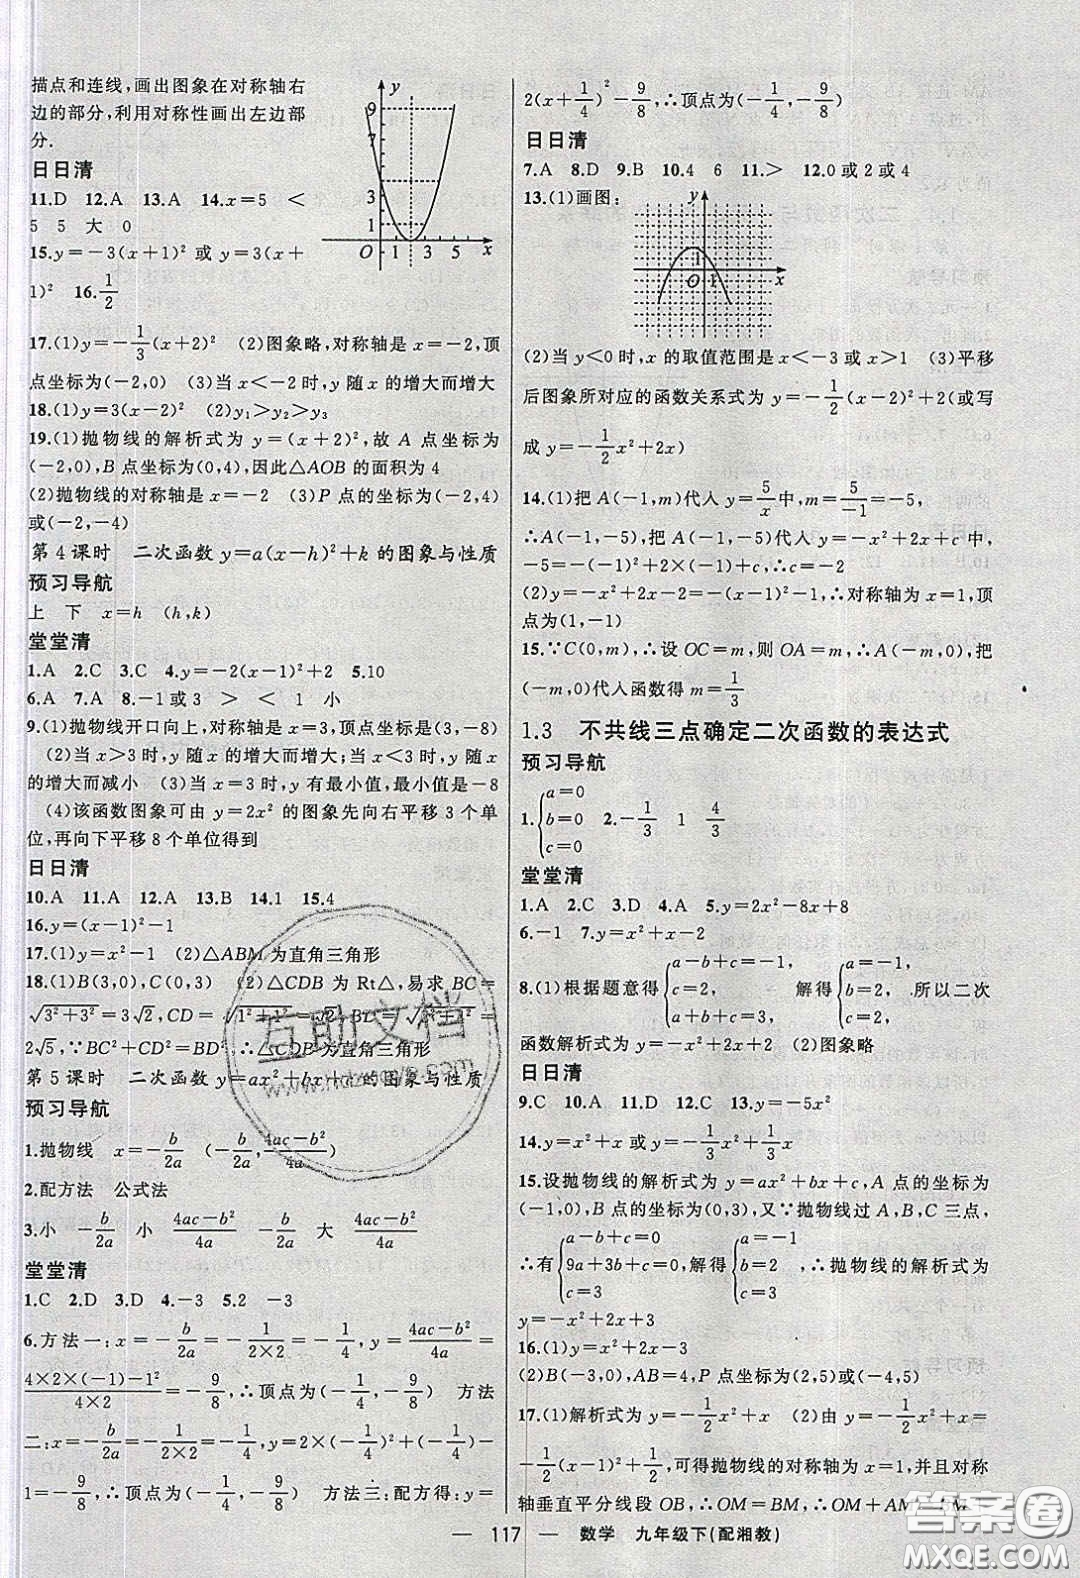 描点和连线,画出图象在对称轴右
边的部分,利用对称性画出左边部
分.
日日清
11.D 12.A 13.A 14.x=5 <
5 5 大 0
15.y=-3(x+1)² 或 y=3(x+
1)² 16.1/2
y
9
3
1
O 1 3 5 x
17.(1)y=-1/3(x+2)² (2)图象略,对称轴是 x=-2,顶
点坐标为(-2,0) (3)当 x<-2 时,y 随 x 的增大而增大
18.(1)y=3(x-2)² (2)y₁>y₂>y₃
19.(1)抛物线的解析式为 y=(x+2)²,故 A 点坐标为
(-2,0),B 点坐标为(0,4),因此△AOB 的面积为 4
(2)抛物线的对称轴是 x=-2 (3)P 点的坐标为(-2,4)
或(-2,-4)
第 4 课时 二次函数 y=a(x-h)²+k 的图象与性质
预习导航
上 下 x=h (h,k)
堂堂清
1.A 2.C 3.C 4.y=-2(x-1)²+2 5.10
6.A 7.A 8.-1或3 > < 1 小
9.(1)抛物线开口向上,对称轴是 x=3,顶点坐标是(3,-8)
(2)当 x>3 时,y 随 x 的增大而增大;当 x<3 时,y 随 x 的
增大而减小 (3)当 x=3 时,y 有最小值,最小值是-8
(4)该函数图象可由 y=2x² 的图象先向右平移 3 个单
位,再向下平移 8 个单位得到
日日清
10.A 11.A 12.A 13.B 14.1 15.4
16.y=(x-1)²-1
17.(1)y=x²-1 (2)△ABM 为直角三角形
18.(1)B(3,0),C(0,3) (2)△CDB 为 Rt△,易求 BC=
√(3²+3²)=3√2,CD=√(1²+1²)=√2,BD=
2√5,∵BC²+CD²=BD²,∴△CDB 为直角三角形
第 5 课时 二次函数 y=ax²+bx+c 的图象与性质
预习导航
1.抛物线 x=-b/2a (-b/2a,(4ac-b²)/4a)
2.配方法 公式法
3.小 -b/2a 小 (4ac-b²)/4a -b/2a 大 (4ac-b²)/4a
堂堂清
1.C 2.D 3.D 4.-3 5.2 -3
6.方法一:x=-b/2a=-1/(2×2)=-1/4,y=(4ac-b²)/4a=
(4×2×(-1)-1²)/(4×2)=-9/8,∴顶点为(-1/4,-9/8) 方法
二:x=-b/2a=-1/(2×2)=-1/4,y=2×(-1/4)²+(-1/4)-
1=-9/8,∴顶点为(-1/4,-9/8) 方法三:配方得:y=
2(x+1/4)²-9/8,∴顶点为(-1/4,-9/8)
日日清
7.A 8.D 9.B 10.4 6 11.> 12.0 或 2 或 4
13.(1)画图:
y
1
O 1 x
(2)当 y<0 时,x 的取值范围是 x<-3 或 x>1 (3)平移
后图象所对应的函数关系式为 y=-1/2(x-2)²+2(或写
成 y=-1/2x²+2x)
14.(1)把 A(-1,m)代入 y=5/x中,m=5/-1=-5,
∴A(-1,-5),把 A(-1,-5)代入函数 y=-x²+2x+c 中,
-5=-(-1)²+2×(-1)+c,∴c=-2
(2)y=-x²+2x-2=-(x-1)²-1,∴对称轴为 x=1,顶
点为(1,-1)
15.∵C(0,m),∴设 OC=m,则 OA=m,∴A(-m,0),把
(-m,0)代入函数得 m=1/3
1.3 不共线三点确定二次函数的表达式
预习导航
1.{a=0 b=0 c=0 2.-1/3 1 4/3
堂堂清
1.A 2.C 3.D 4.A 5.y=2x²-8x+8
6.-1 7.y=x²+x-2
8.(1)根据题意得{a-b+c=1, c=2, a+b+c=3, 解得{a=1, b=2, c=2, 所以二次
函数解析式为 y=x²+2x+2 (2)图象略
日日清
9.C 10.A 11.D 12.C 13.y=-5x²
14.y=x²+x 或 y=-1/3x²+1/3x
15.设抛物线的解析式为 y=ax²+bx+c,A 点的坐标为
(-1,0),B 点的坐标为(0,3),又∵抛物线过 A,B,C 三点,
∴有{a-b+c=0 9a+3b+c=0, c=3 解得{a=-1 b=2 c=3 ,∴抛物线的解析式为
y=-x²+2x+3
16.(1)y=x²+2x-3
(2)B(-3,0),AB=4,P 点坐标为(2,5)或(-4,5)
17.(1)解析式为 y=-1/2x²+x (2)由 y=-1/2x²+x=
-1/2(x-1)²+1/2,可得抛物线的对称轴为 x=1,并且对称
轴垂直平分线段 OB,∴OM=BM,∴OM+AM=
— 117 — 数学 九年级下(配湘教)
互助文档
答案圈
MXQE.COM